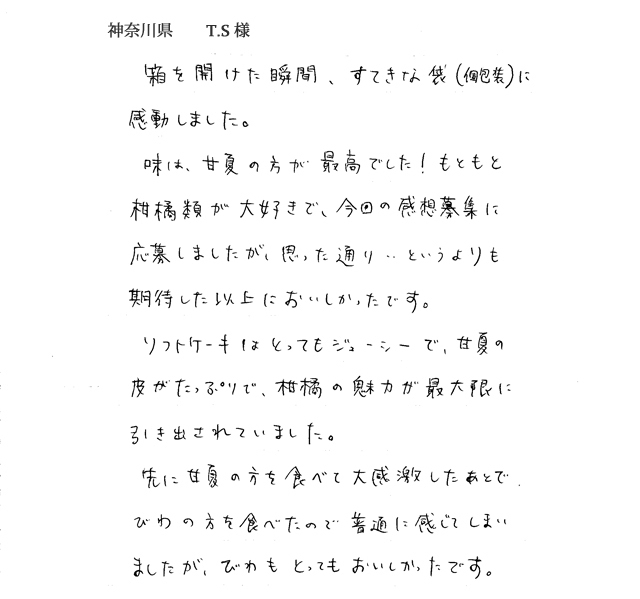 神奈川県　T.S 様
箱を開けた瞬間、すてきな袋(個包装)に
感動しました。
味は、甘夏の方が最高でした！もともと
柑橘類が大好きで、今回の感想募集に
応募しましたが、思った通り‥というよりも
期待した以上においしかったです。
ソフトケーキはとってもジューシーで、甘夏の
皮がたっぷりで、柑橘の魅力が最大限に
引き出されていました。
先に甘夏の方を食べて大感激したあとで
びわの方を食べたので普通に感じてしまい
ましたが、びわもとってもおいしかったです。